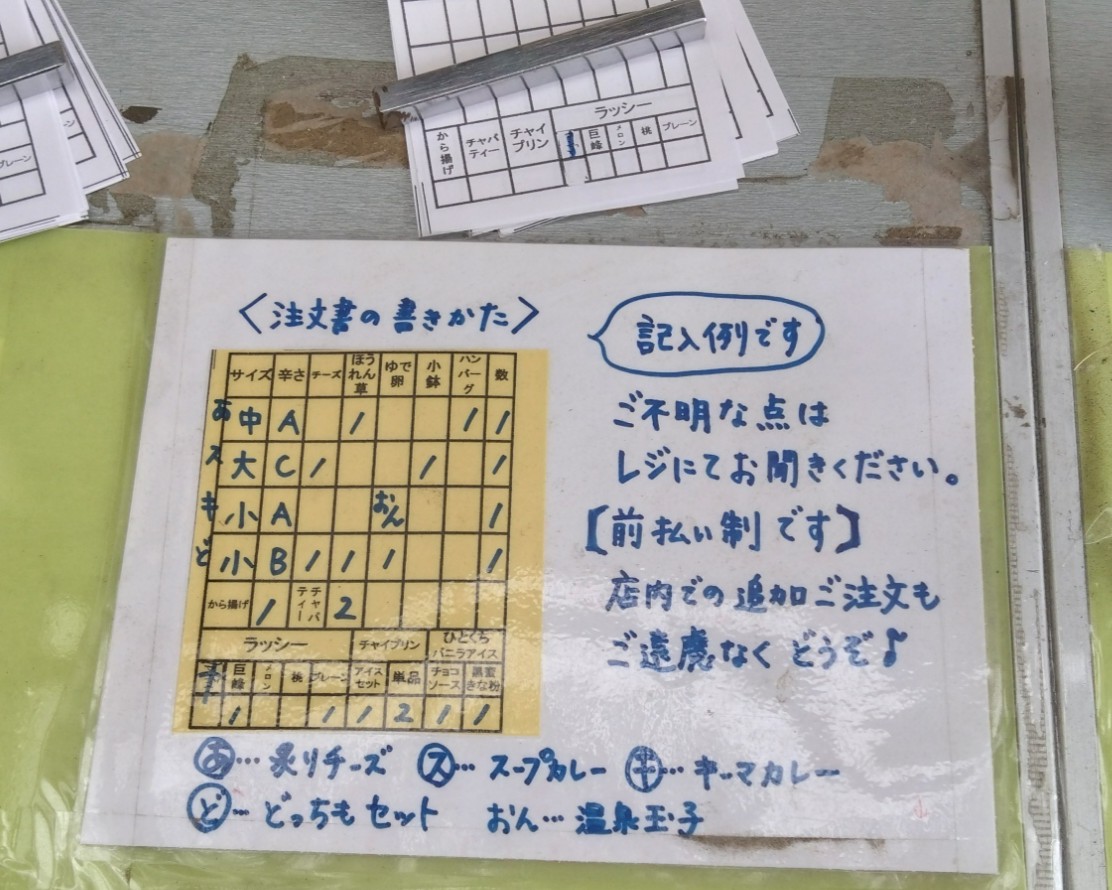 ラッシー
から揚げ チャパティー チャイプリン 巨峰 メロン 桃 プレーン
プレーン
<注文書の書きかた>
記入例です
サイズ 辛さ チーズ ほうれん草 ゆで卵 小鉢 ハンバーグ 数
あ 中 A / / /
ス 大 C / / /
キ 小 A おん /
ど 小 B / / / /
から揚げ / チャパティー 2
ラッシー チャイプリン ひとくちバニラアイス
巨峰 メロン 桃 プレーン アイスセット 単品 チョコソース 黒蜜きな粉
/ / / 2 / /
ご不明な点は
レジにてお聞きください。
【前払い制です】
店内での追加ご注文も
ご遠慮なくどうぞ♪
あ…炙りチーズ ス…スープカレー キ…キーマカレー
ど…どっちもセット おん…温泉玉子